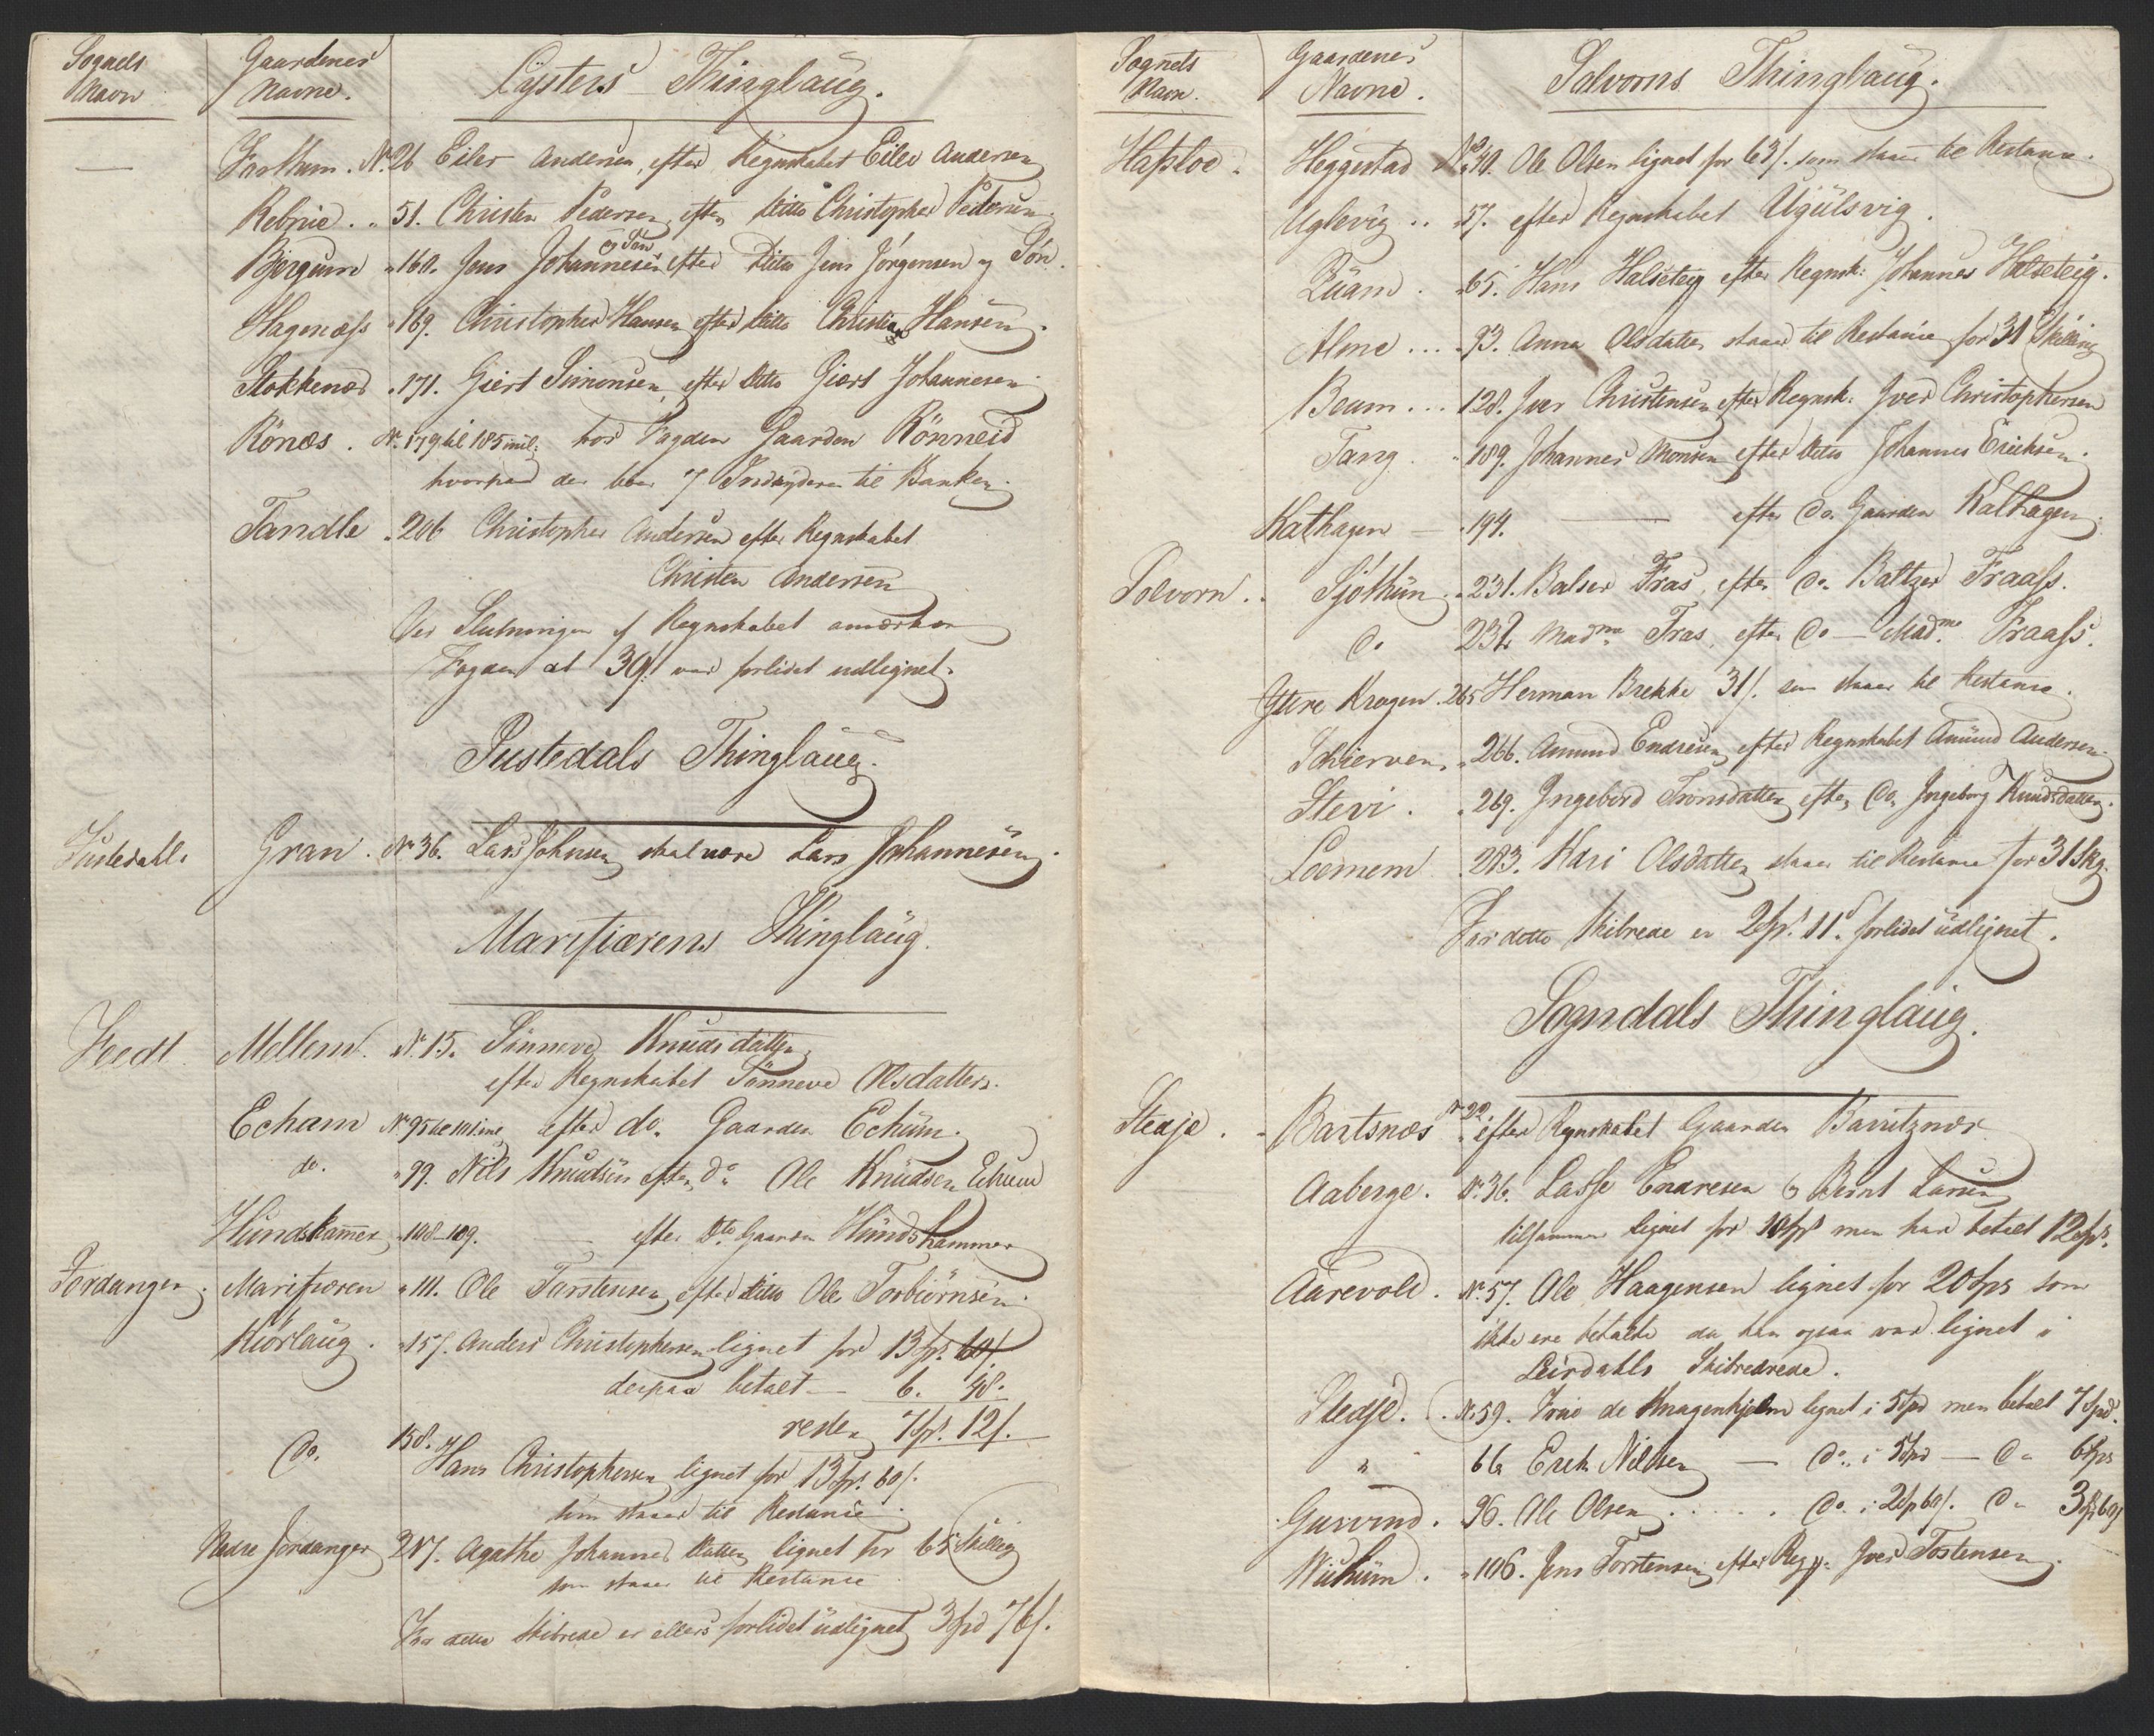 Sognets Navn
Gaardenes Navne.
Lysters Thinglaug.
— Farthum. No. 26 Eiler Andersen, efter Regnskabet Eiler Andersen
Rebnie. " 51. Christen Pedersen, efter Ditto Christopher Pedersen.
Bjergum " 160. Jens Johannesen og Søn efter Ditto Jens Jörgensen og Sön.
Hagenæss " 169. Christopher Hansen efter Ditto Christian Hansen.
Stokkenæs " 171. Giert Simonsen, efter Ditto Giert Johannesen
Rönæs. No. 179 til 185 incl: har Fogden Gaarden Rönneid
hvorpaa der boer 7 Indskydere til Banken.
Tandle " 206 Christopher Andersen efter Regnskabet
Christen Andersen
Ved Slutningen af Regnskabet anmærker
Fogden at 39ß var forlidet udlignet.
Justedals Thinglaug.
Justedahl. Gran. No. 36. Lars Johnsen skal være Lars Johannesen.
Marifiærens Thinglaug.
Feedt Mellem. No. 15. Sønneve Knudsdatter
efter Regnskabet Sønneve Olsdatter.
Echam No. 95 til 101 inc. efter do. Gaarden Echum.
do. " 99. Nils Knudsen efter do. Ole Knudsen Echum
Hundskammer " 108-109. — efter Dto Gaarden Hundshammer
Jordanger. Marifiæren " 111. Ole Torstensen, efter Ditto Ole Torbiörnsen.
Kiörlaug. " 157. Anders Christophersen lignet for 13 spd. 60ß
derpaa betalt — 6. 48.
rester 7 spd. 12ß.
Do. 158. Hans Christophersen lignet for 13 spd. 60ß.
som staaer til Restance.
Nedre Jordanger 217. Agathe Johannes Datter lignet for 65 Skilling
som staaer til Restance
For dette Skibrede er ellers forlidet udlignet 3 spd 76ß.
Sognets Navn.
Gaardenes Navne.
Solvorns Thinglaug.
Hafsloe. Heggestad No. 40. Ole Olsen lignet for 63ß. som staaer til Restance.
Uglevig .. " 57. efter Regnskabet Ugülsvig.
Quam. " 65. Hans Halsteig efter Regnsk: Johannes Halsteig.
Alme ... " 93. Anna Olsdatter staaer til Restance for 31 Skilling
Beum ... 128. Iver Christensen efter Regnsk: Iver Christophersen
Tang. " 189. Johannes Monsen efter Ditto Johannes Ericksen.
Kathagen — " 194. — efter Do. Gaarden Kalhagen.
Solvorn.. Sjöthun. " 231. Balser Fras, efter Do. Baltzer Fraass.
Do 232. Madme Fras, efter Do — Madme Fraass.
Yttre Kroegen. 265 Herman Brekke 31ß. som staaer til Restance.
Schierven. " 266. Amund Endresen, efter Regnskabet Amund Andersen.
Stevi. " 269. Ingebord Tronsdatter efter Do. Ingeborg Knudsdatter.
Loemem. 283. Kari Olsdatter staaer til Restance for 31 skg.
For dette Skibrede er 2 spd. 11ß. forlidet udlignet.
Sogndals Thinglaug.
Stedje. Bartsnæs No 22 " efter Regnskabet Gaarden Baritznæs
Aaberge. No. 36. Lasse Endresen og Bernt Larsen
tilsammen lignet for 10 spd men har betalt 12 spd.
Aarevold. No. 57. Ole Haagensen lignet for 20 spd som
ikke ere betalte da han ogsaa var lignet i
Leirdahls Skibredrede.
Stedje. No. 59. Frue de Knagenhjelm lignet i 5 spd men betalt 7 spd.
" 66 Erik Nielsen — Do. i 5 spd — Do 6 spd
Gurvind. 96. Ole Olsen ..... Do. i 2 spd 60ß. Do 3 spd 60ß
Wichum. " 106. Jens Torstensen efter Reg: Iver Tostensen.